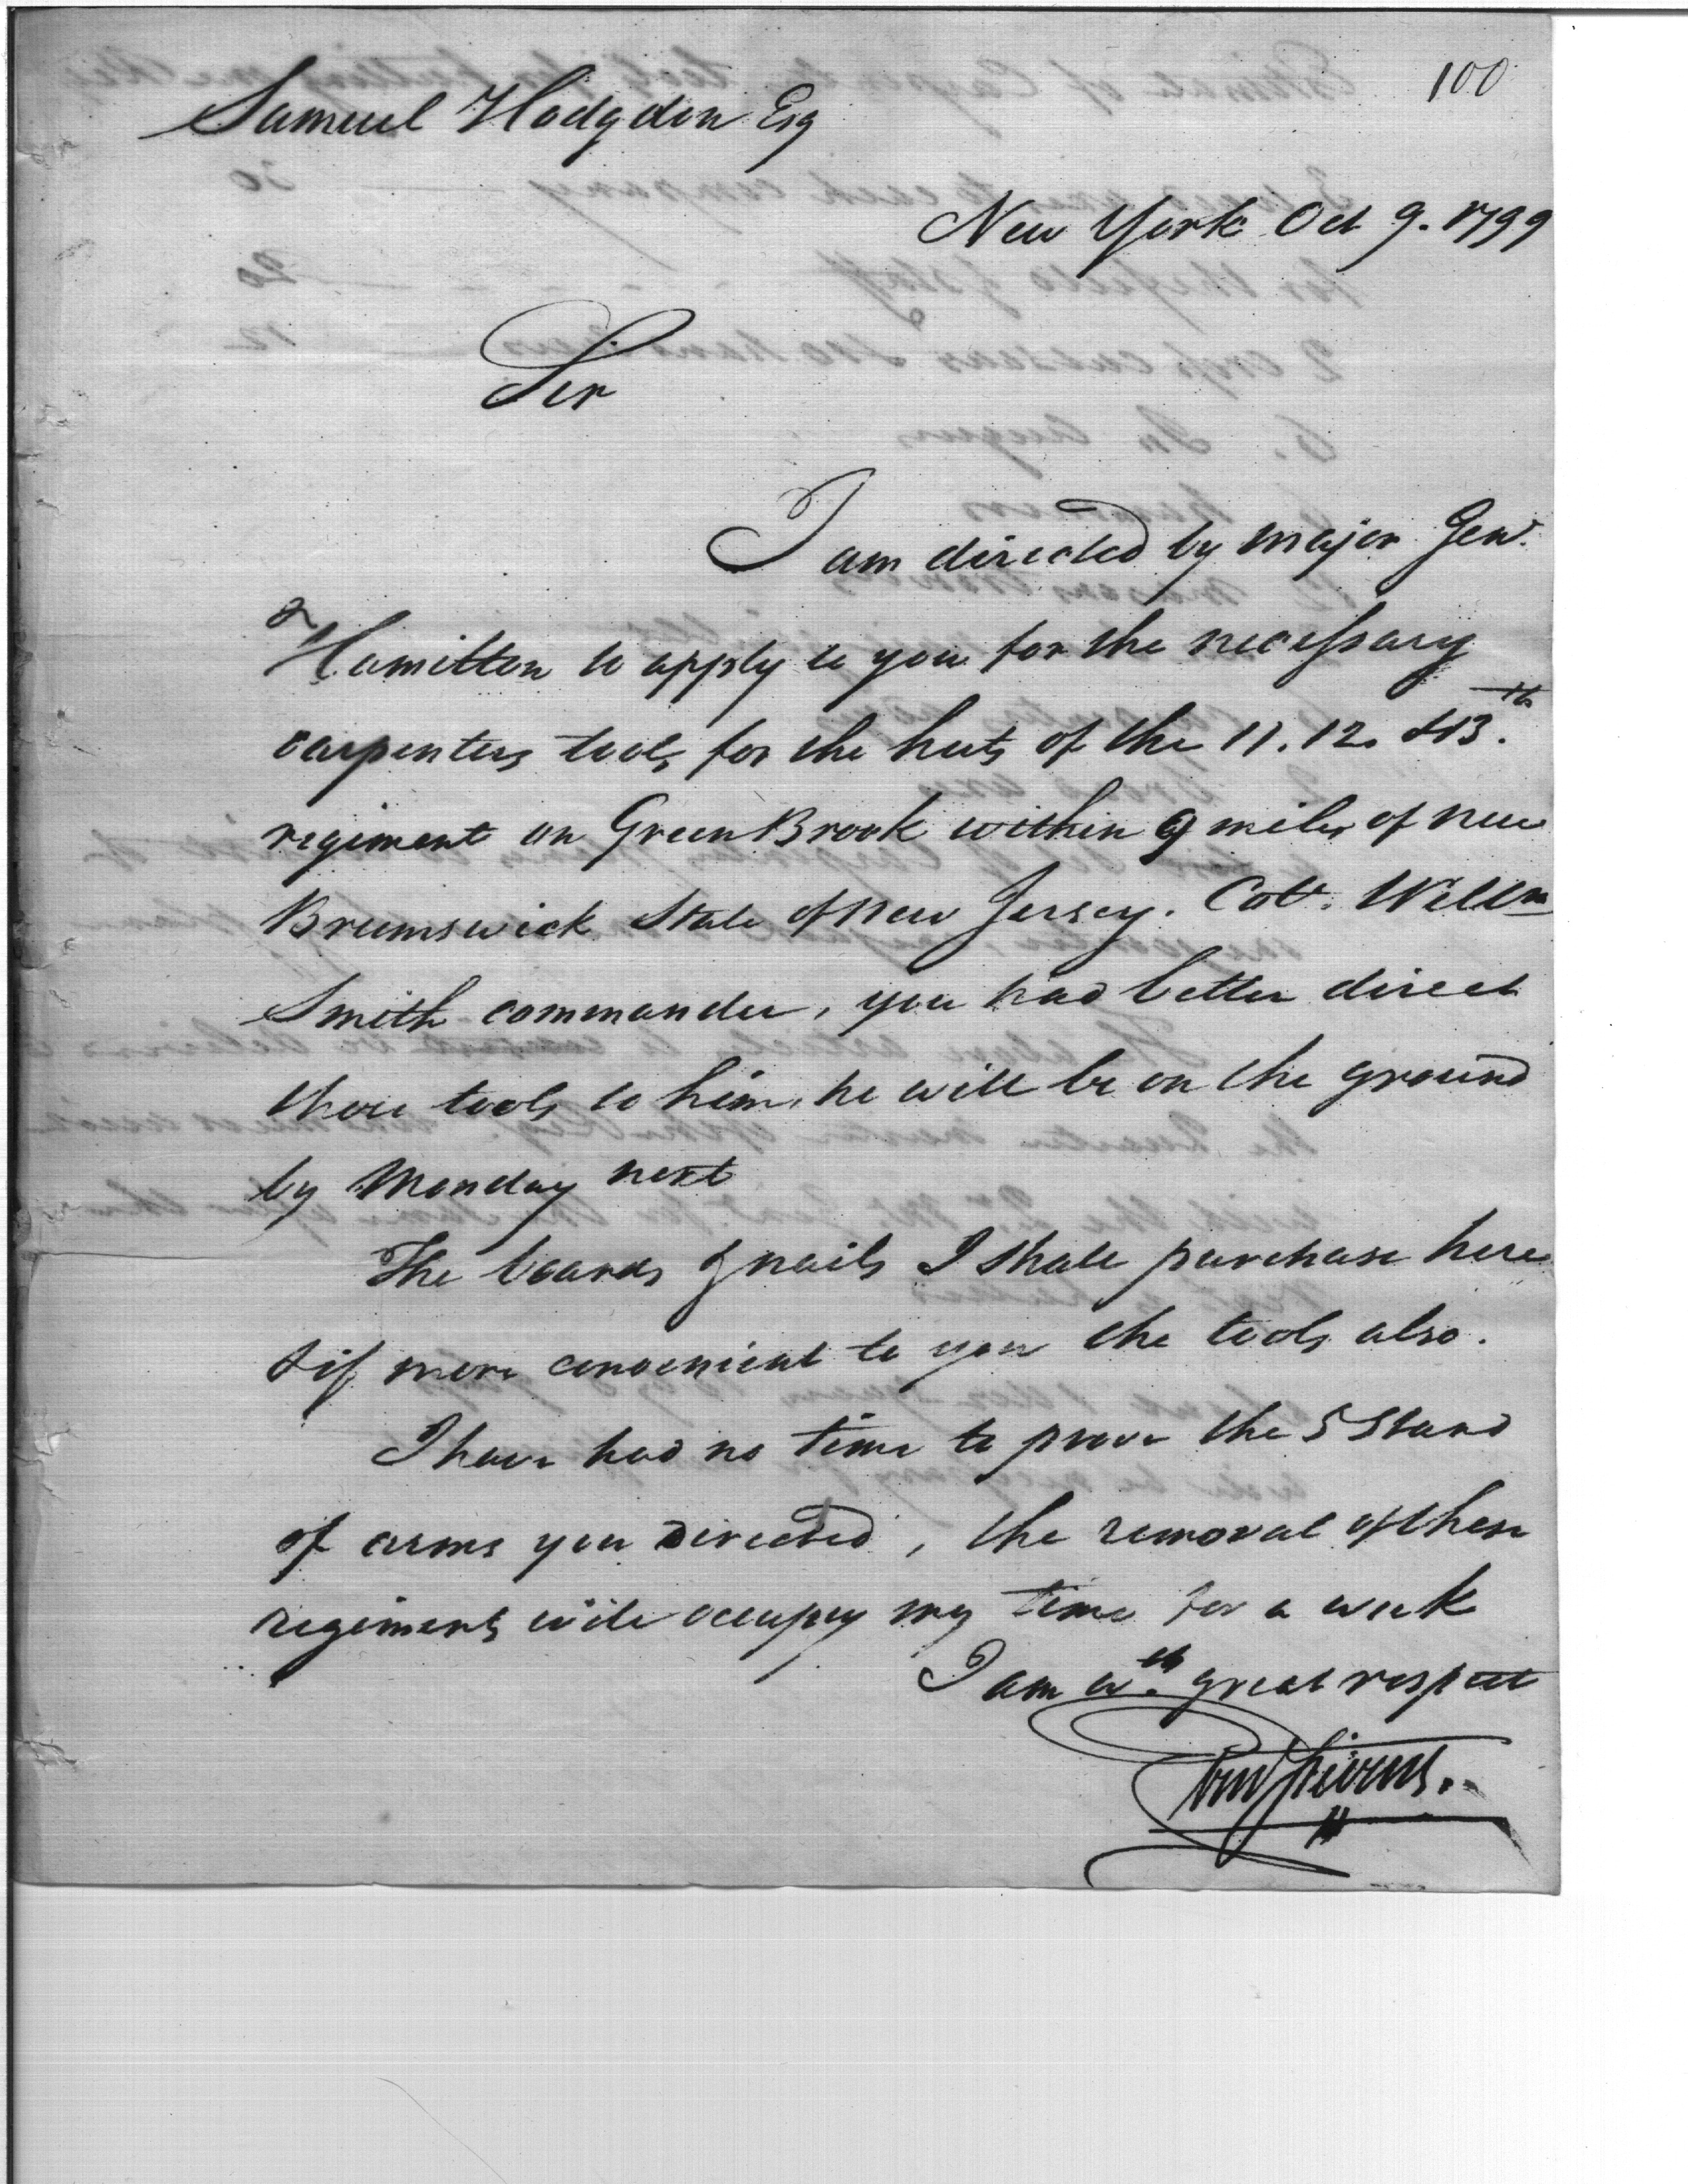 100
Samuel Hodgdon Esq
New York Oct 9. 1799
Sir
I am directed by Major Genl.
Hamilton to apply to you for the necessary
carpenters tools for the huts of the 11. 12. & 13.th
regiment on Green Brook within 9 miles of new
Brunswick State of New Jersey. Col. Willm
Smith commander, you had better direct
those tools to him, he will be on the ground
by Monday next
The boards & nails I shall purchase here
& if more convenient to you the tools also.
I have had no time to prove the 5 Stand
of arms you directed, the removal of these
regiments will occupy my time for a week
I am wth. great respect
Stevens.